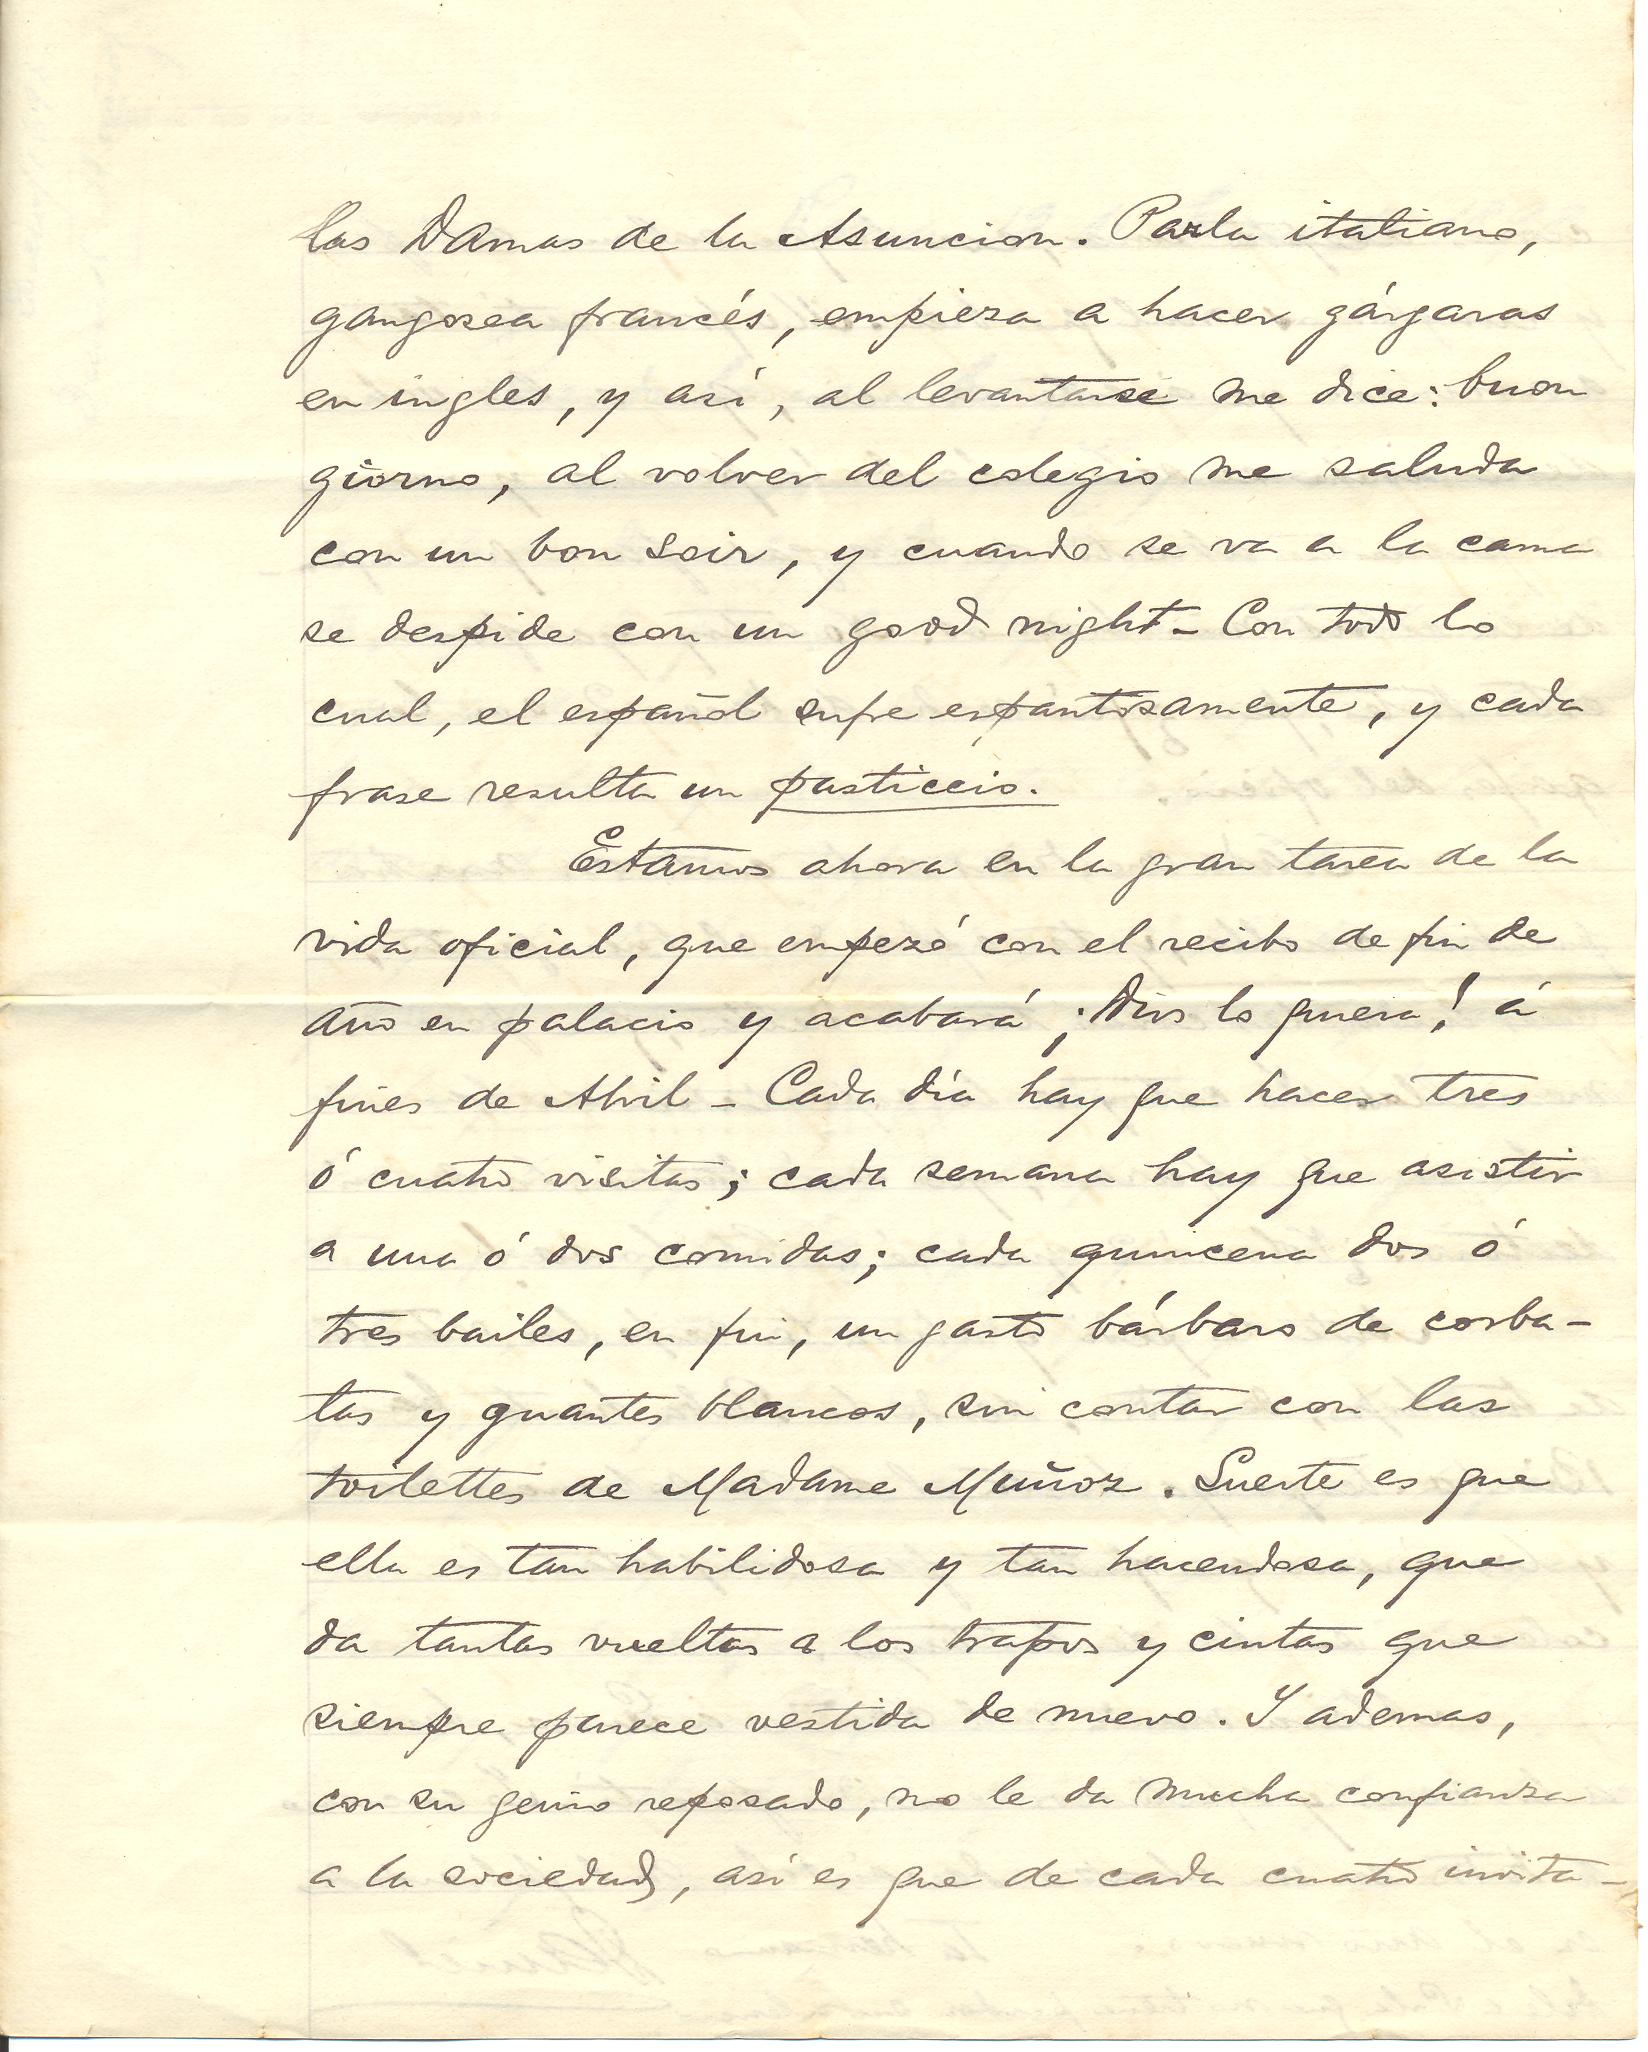 las Damas de la Asuncion. Parla italiano,
gangosea francés, empieza a hacer gárgaras
en ingles, y así, al levantarse me dice: buon
giorno, al volver del colegio me saluda
con un bon soir, y cuando se va a la cama
se despide con un good night - Con todo lo
cual, el español sufre espantosamente, y cada
frase resulta un pasticcio.
Estamos ahora en la gran tarea de la
vida oficial, que empezó con el recibo de fin de
año en palacio y acabará ¡Dios lo quiera! á
fines de Abril - Cada día hay que hacer tres
ó cuatro visitas; cada semana hay que asistir
a una ó dos comidas; cada quincena dos ó
tres bailes, en fin, un gasto bárbaro de corba-
tas y guantes blancos, sin contar con las
toilettes de Madame Muñoz. Suerte es que
ella es tan habilidosa y tan hacendosa, que
da tantas vueltas a los trapos y cintas que
siempre parece vestida de nuevo. Y ademas,
con su genio reposado, no le da mucha confianza
a la sociedad, así es que de cada cuatro invita-